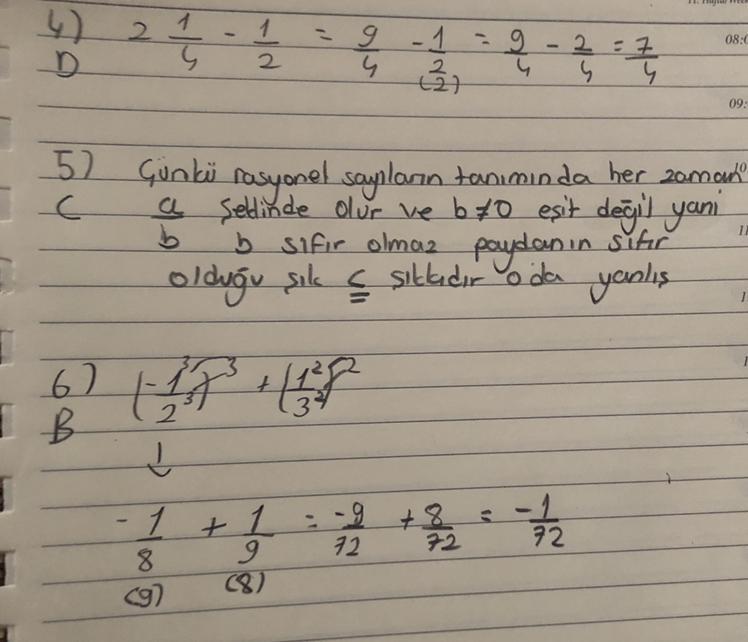 4) 2 1/4 - 1/2 = 9/4 - 1/2 = 9/4 - 2/4 = 7/4
D (2)
5) Çünkü rasyonel sayıların tanımında her zaman
C a/b şeklinde olur ve b≠0 eşit değil yani
b sıfır olmaz paydanın sıfır
olduğu şık C şıkkıdır o da yanlış
6) (-1³/2³)³ + (1²/3²)²
B ↓
-1/8 + 1/9 = -9/72 + 8/72 = -1/72
(9) (8)
08:0
09: